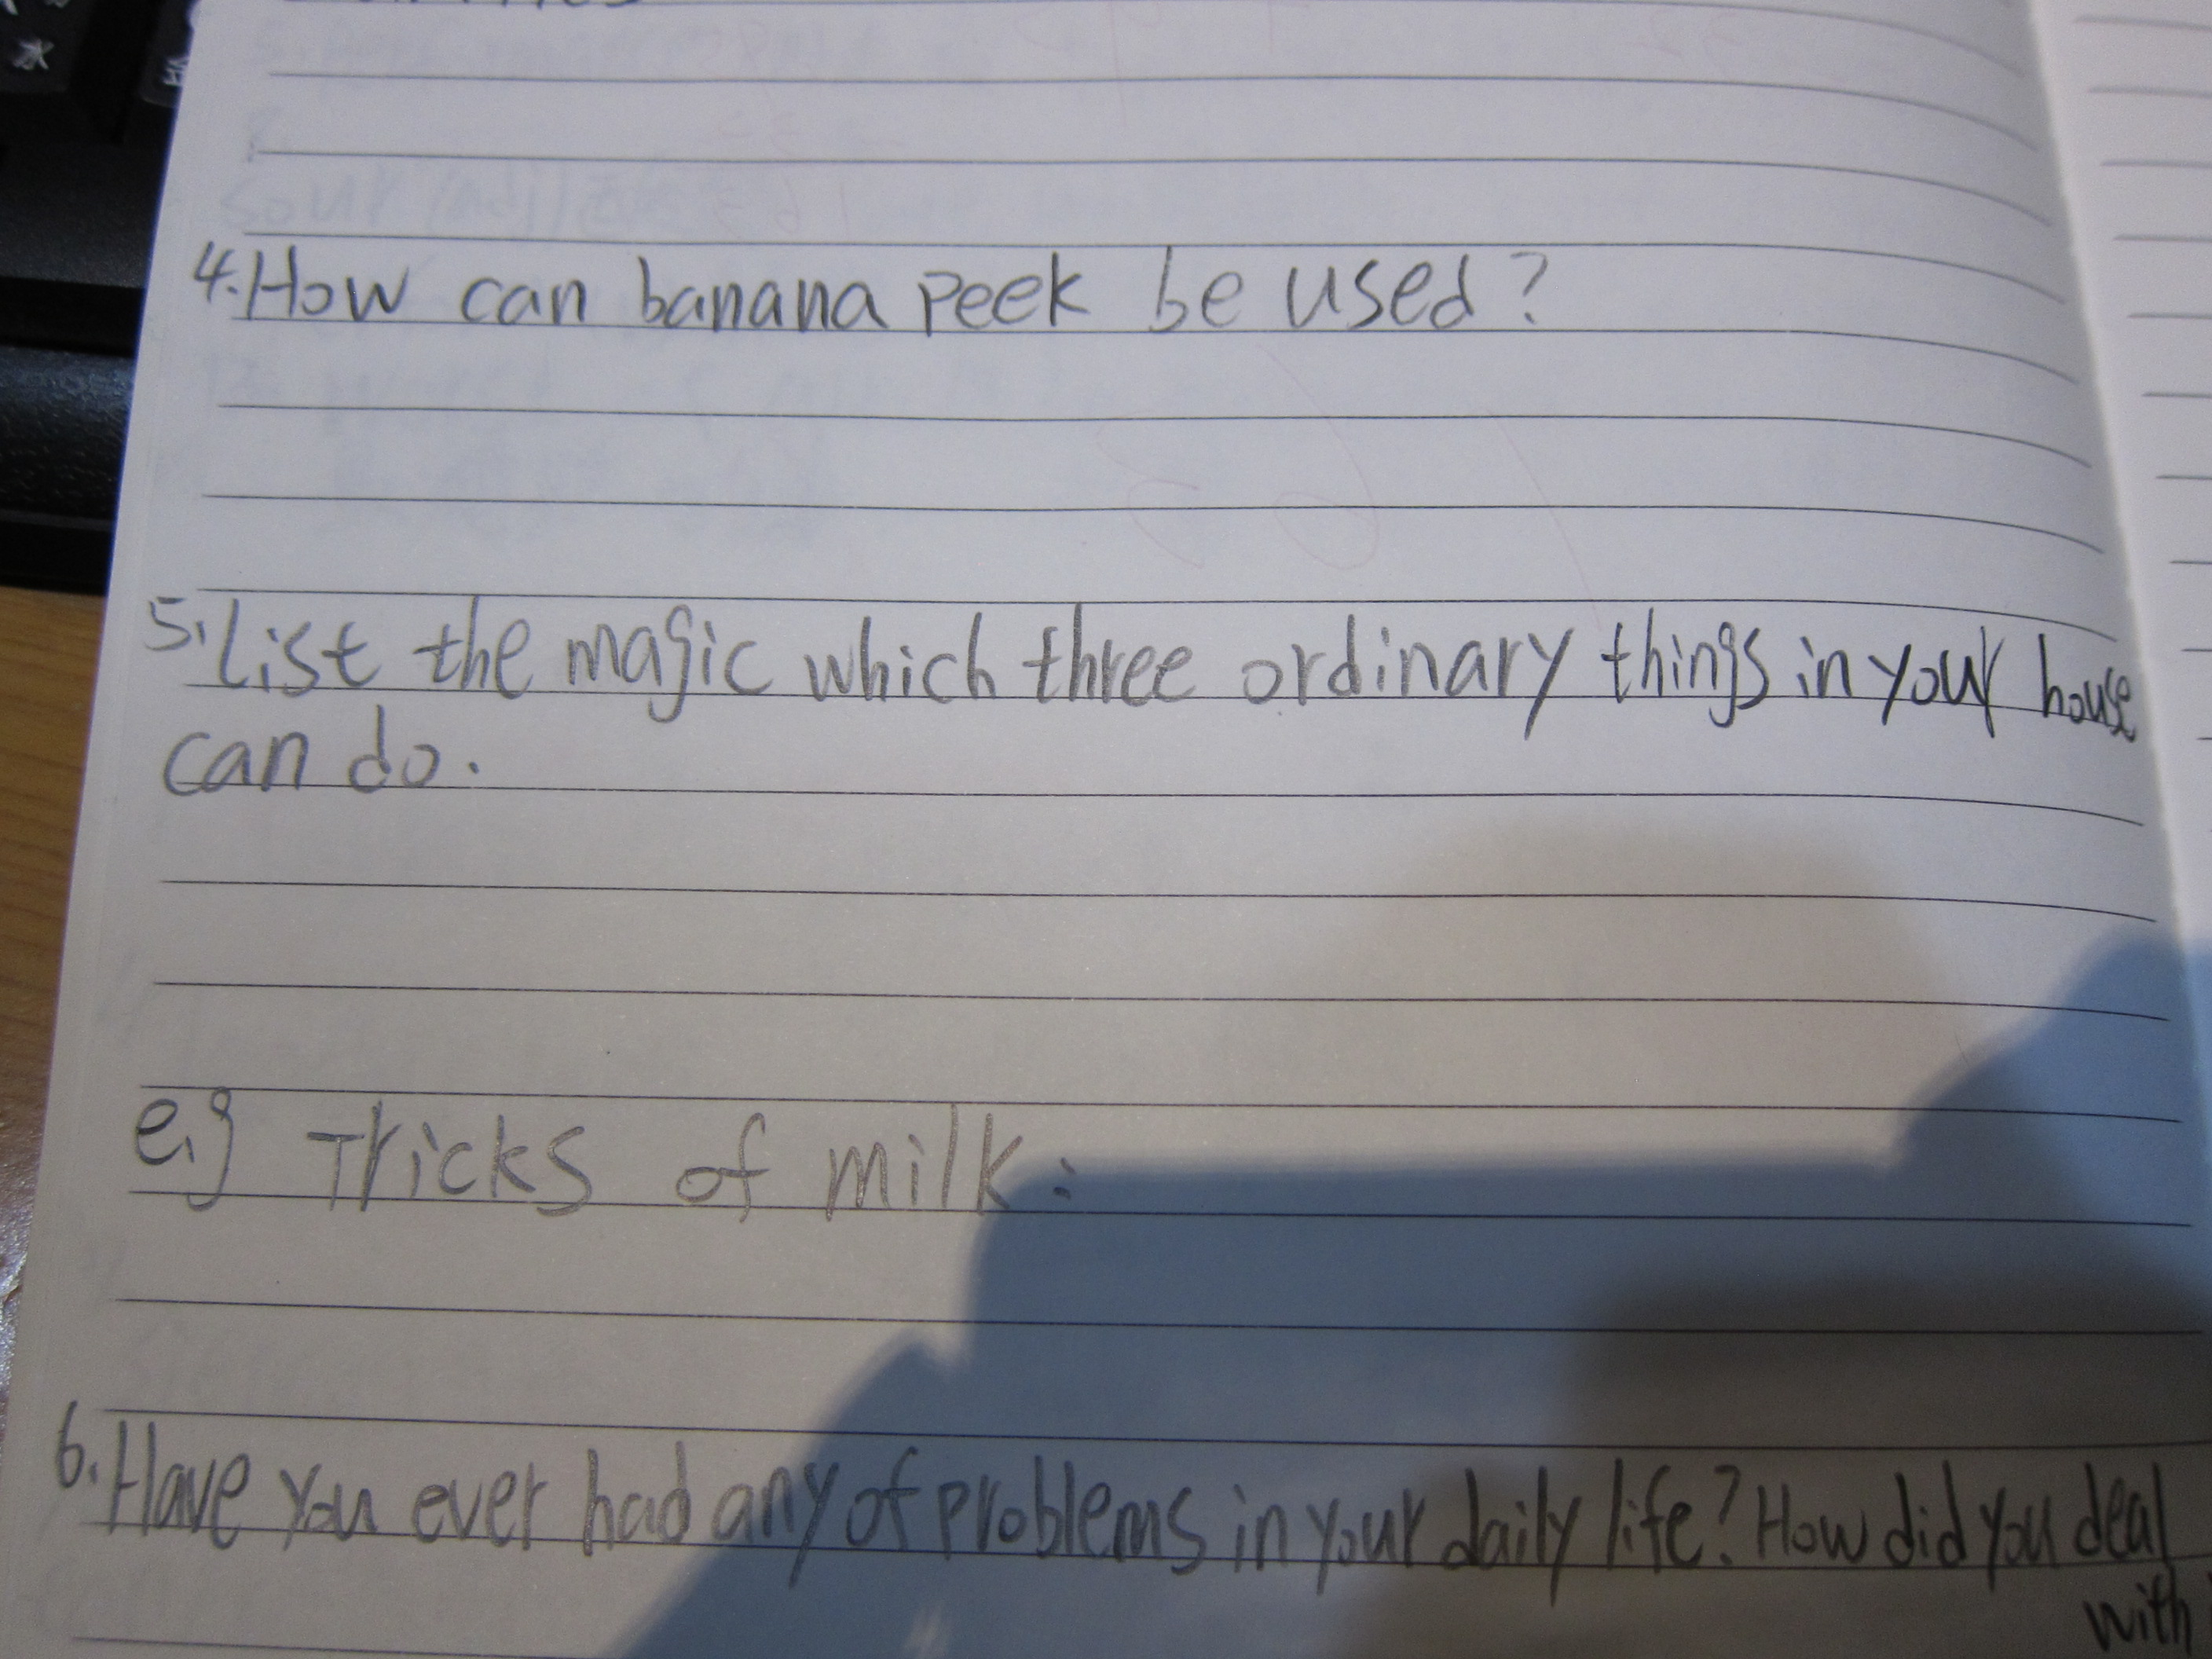 4. How can banana peek be used?
5. List the magic which three ordinary things in your house
can do.
e.g Tricks of milk:
6. Have you ever had any of problems in your daily life? How did you deal
with